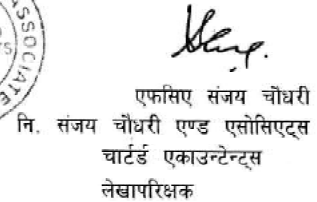 ASSOCIATE
एफसिए संजय चौधरी
नि. संजय चौधरी एण्ड एसोसिएट्स
चार्टर्ड एकाउन्टेन्ट्स
लेखापरिक्षक